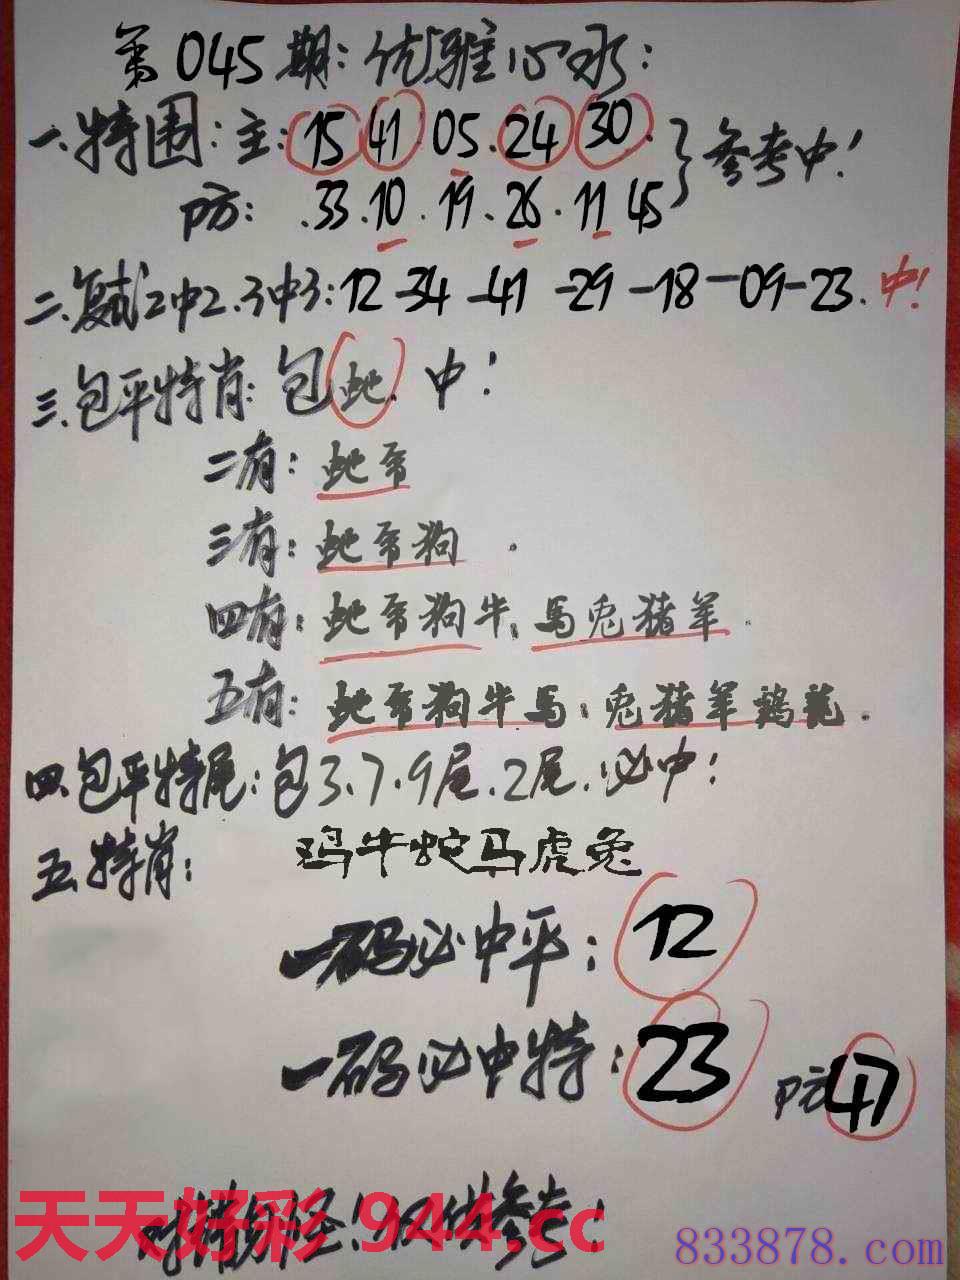 第045期:优雅心水:
一.特围:主:15 41 05.24 30.}参考中!
防:.33.10.19.26.11 45
二.复试2中2.3中3:12-34-41-29-18-09-23.中!
三.包平特肖:包蛇.中!
二有:蛇帝
三有:蛇帝狗.
四有:蛇帝狗牛.馬兎猪羊.
五有:蛇帝狗牛馬:兎猪羊鶏龍.
四.包平特尾:包3.7.9尾.2尾.必中!
五.特肖:鸡牛蛇马虎兔
一码必中平:12
一码必中特:23 防47
料精勿怪!仅供参考!
天天好彩 944.cc
833878.com